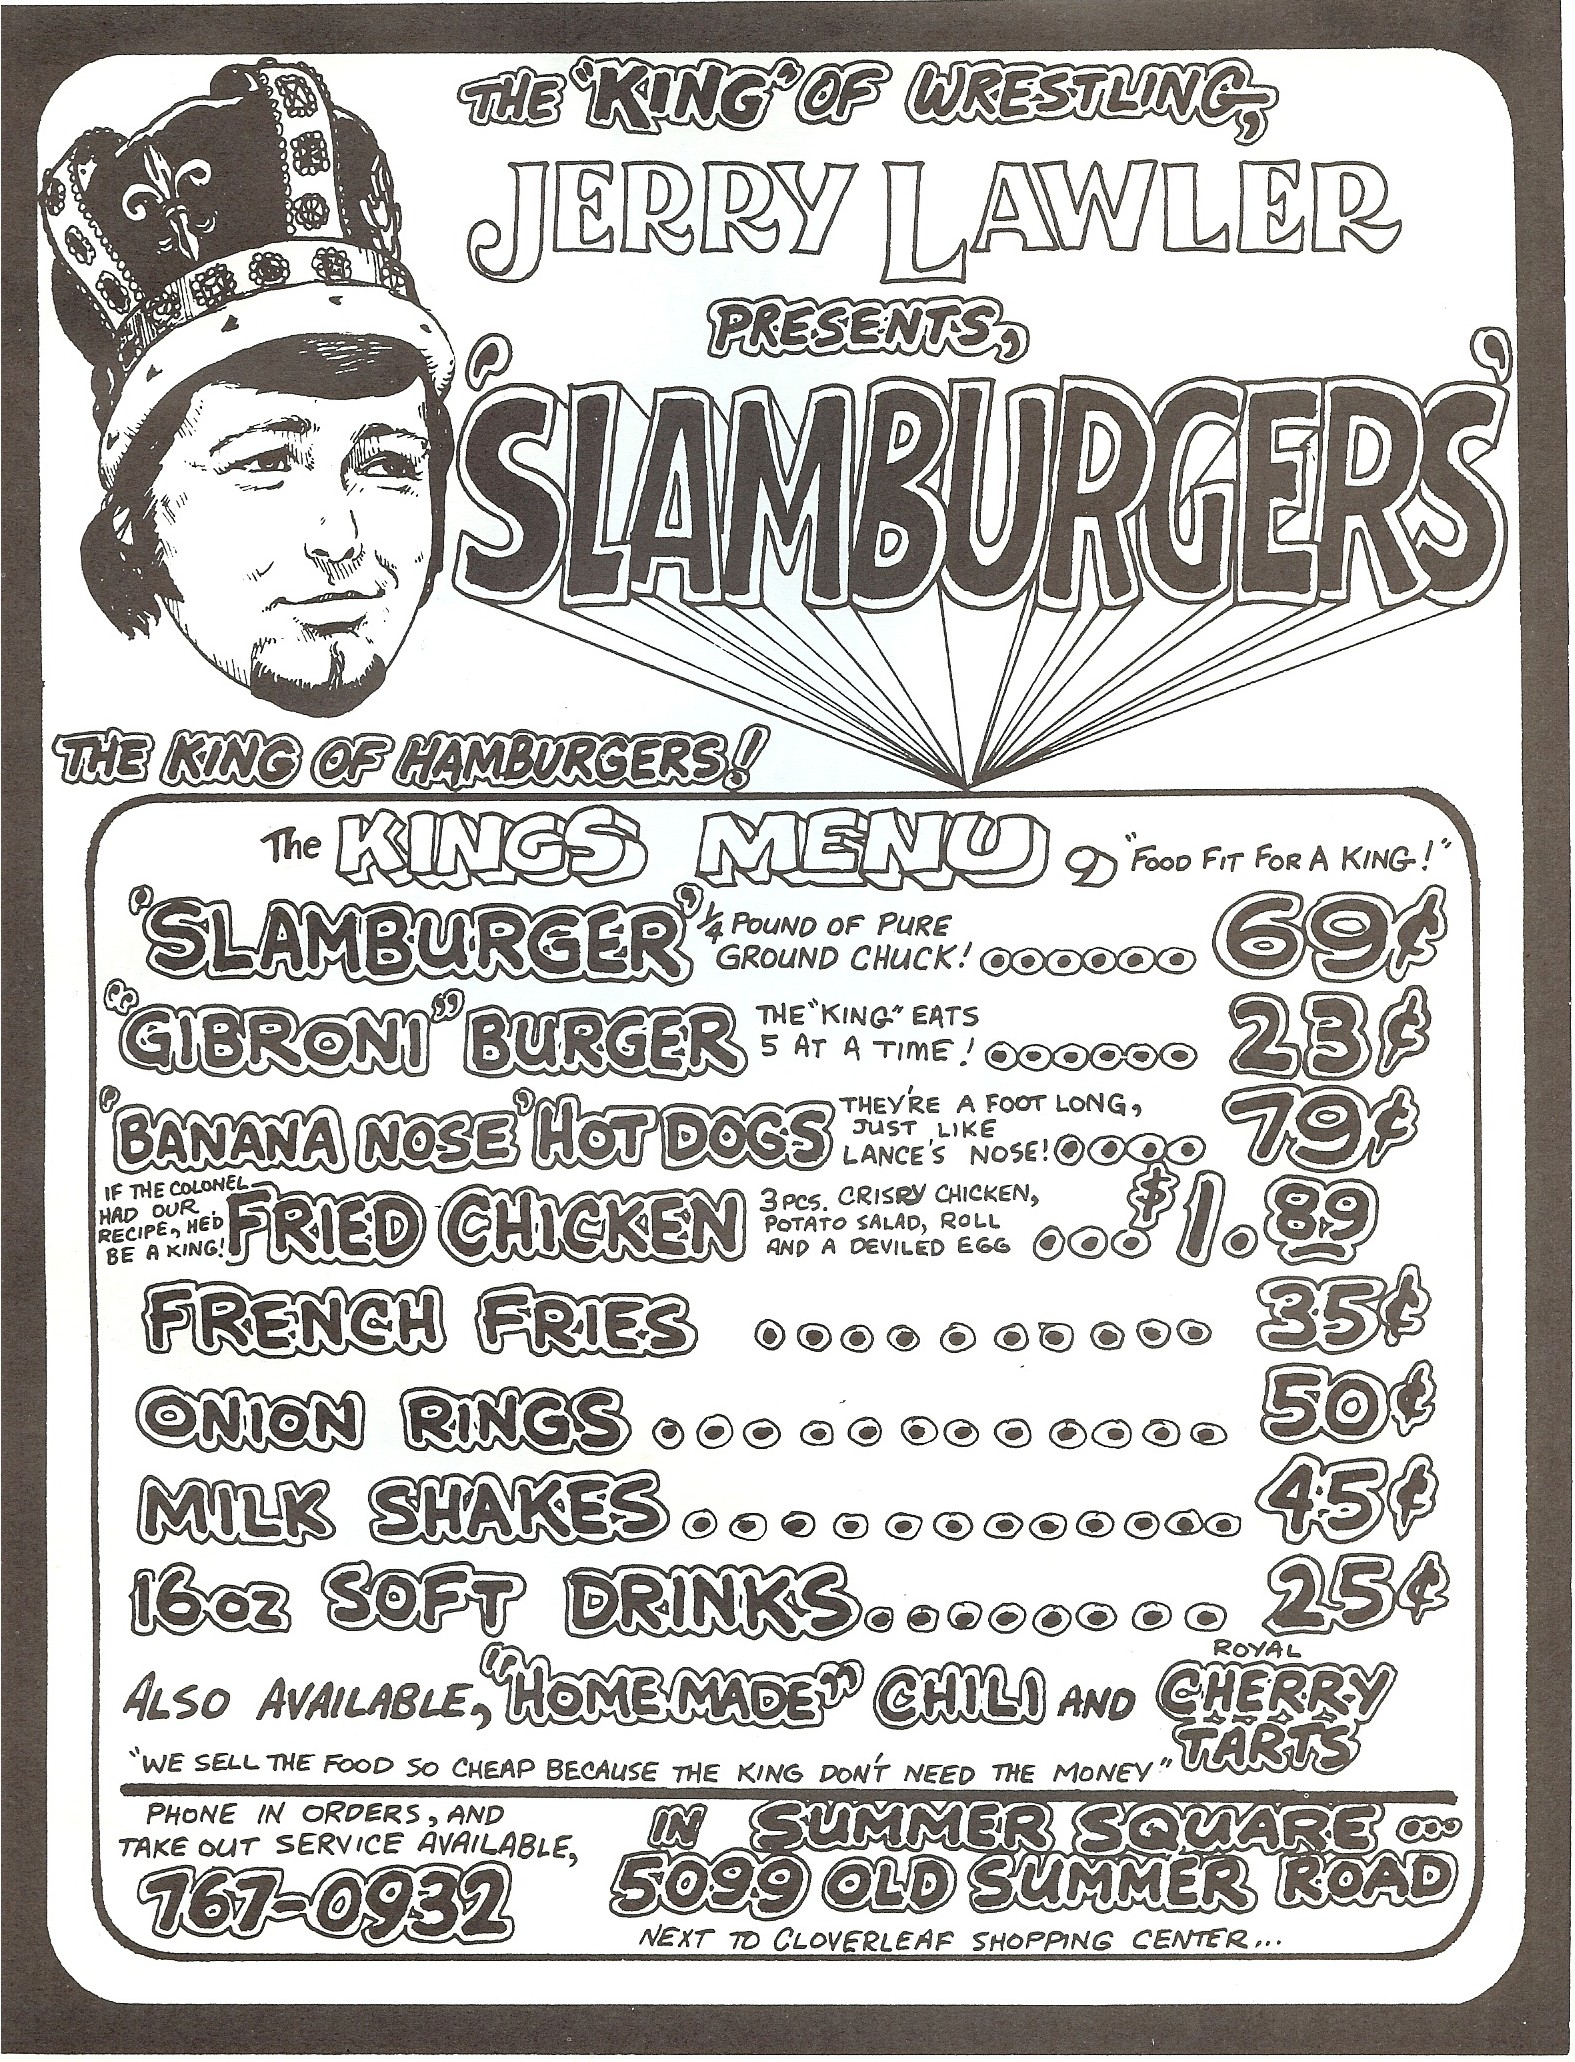 THE "KING" OF WRESTLING,
JERRY LAWLER
PRESENTS,
'SLAMBURGERS'
THE KING OF HAMBURGERS!
The KINGS MENU, "FOOD FIT FOR A KING!"
'SLAMBURGER' 1/4 POUND OF PURE
GROUND CHUCK! ...... 69¢
"GIBRONI" BURGER THE "KING" EATS
5 AT A TIME! ...... 23¢
'BANANA NOSE' HOT DOGS THEY'RE A FOOT LONG,
JUST LIKE
LANCE'S NOSE! .... 79¢
IF THE COLONEL
HAD OUR
RECIPE, HE'D
BE A KING! FRIED CHICKEN 3 PCS. CRISPY CHICKEN,
POTATO SALAD, ROLL
AND A DEVILED EGG ... $1.89
FRENCH FRIES .......... 35¢
ONION RINGS ............ 50¢
MILK SHAKES ............ 45¢
16 oz SOFT DRINKS ........ 25¢
ALSO AVAILABLE, "HOME MADE" CHILI AND ROYAL
CHERRY
TARTS
"WE SELL THE FOOD SO CHEAP BECAUSE THE KING DON'T NEED THE MONEY"
PHONE IN ORDERS, AND
TAKE OUT SERVICE AVAILABLE,
767-0932
IN SUMMER SQUARE ...
5099 OLD SUMMER ROAD
NEXT TO CLOVERLEAF SHOPPING CENTER...